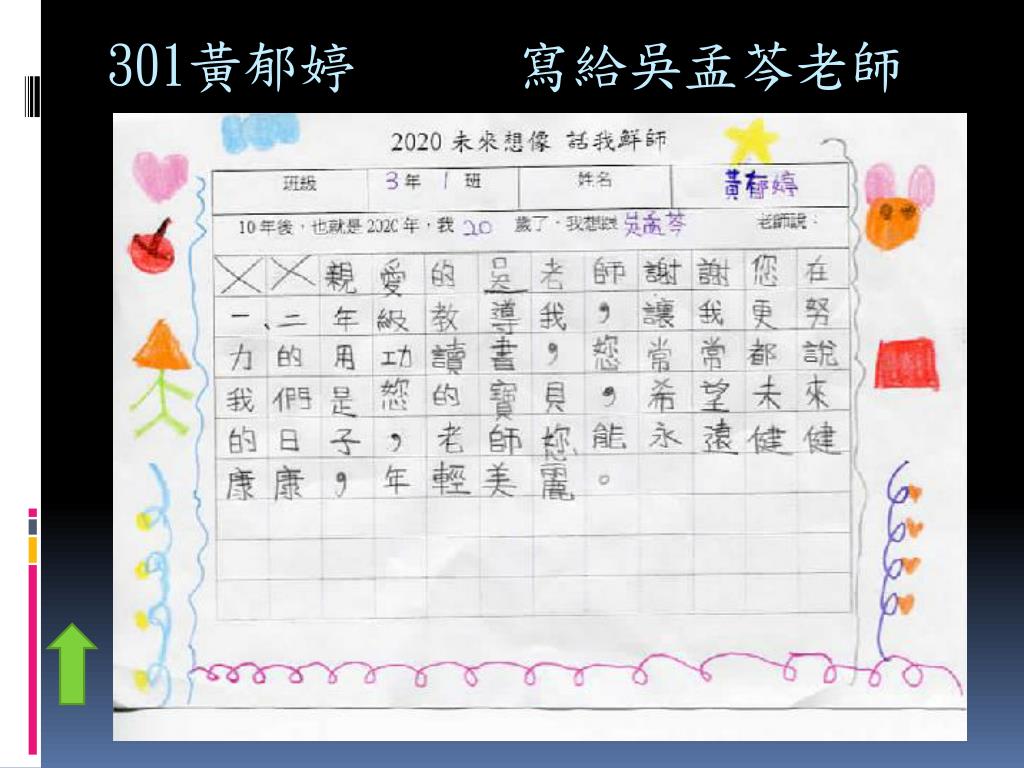 301黃郁婷 寫給吳孟芩老師
2020 未來想像 話我鮮師
班級 3年 1 班 姓名 黃郁婷
10 年後，也就是 2020 年，我 20 歲了，我想跟 吳孟芩 老師說：
親愛的吳老師謝謝您在
一、二年級教導我，讓我更努
力的用功讀書，您常常都說
我們是您的寶貝，希望未來
的日子，老師您能永遠健健
康康，年輕美麗。